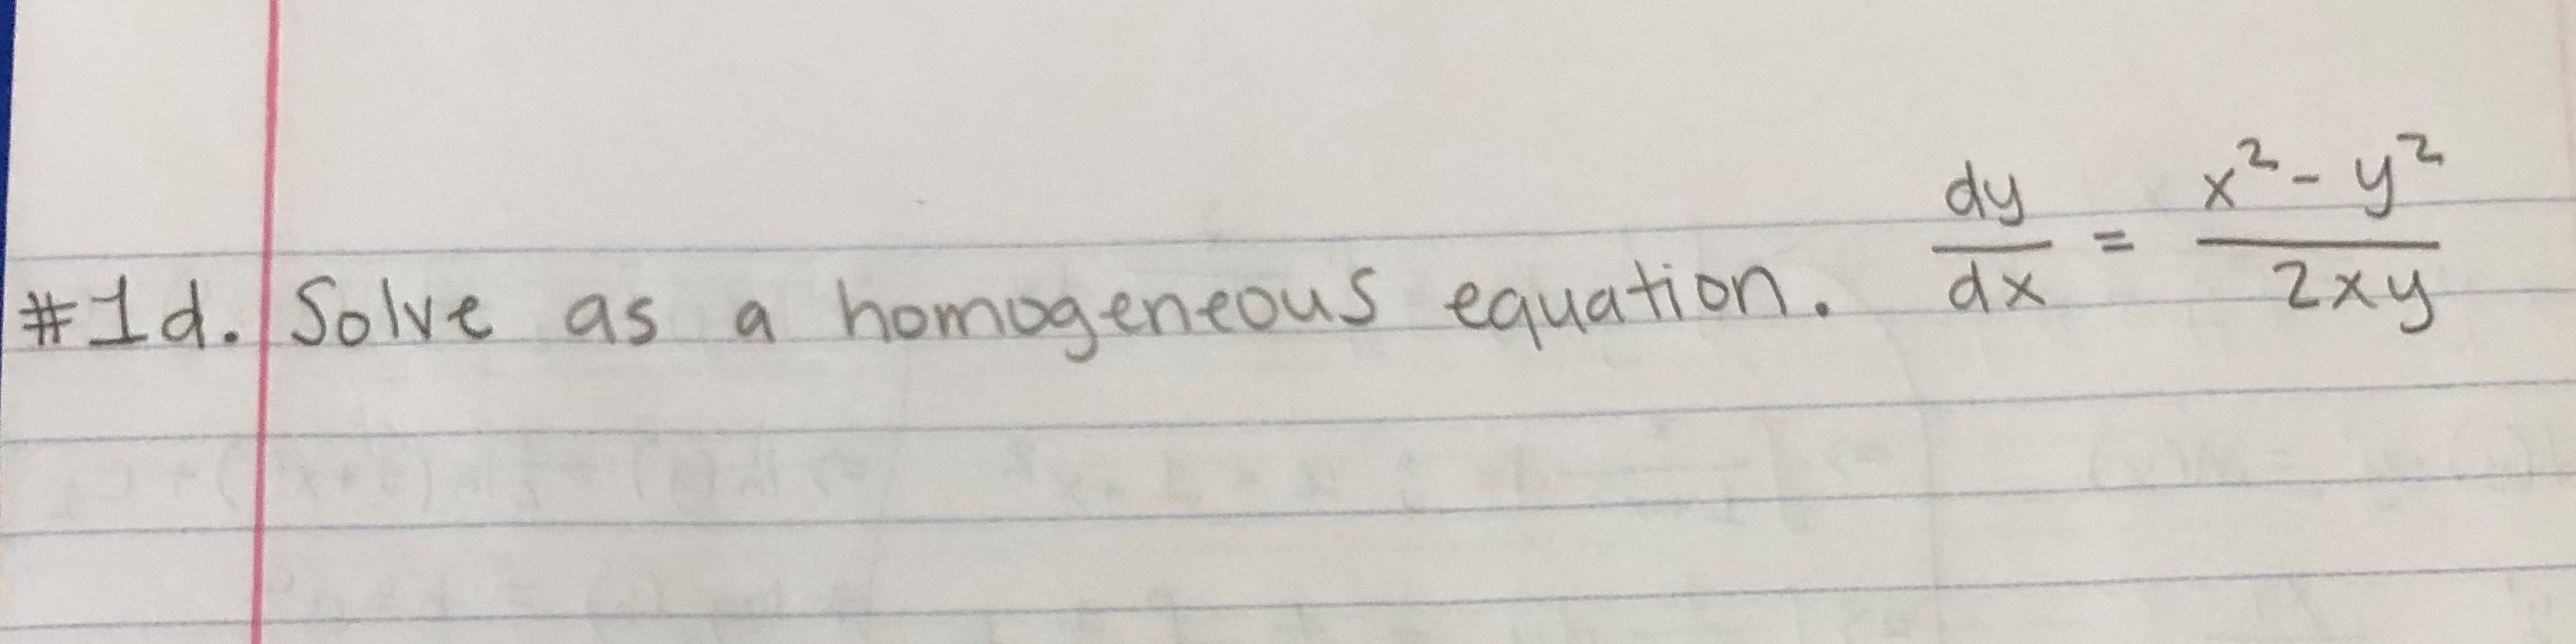 #1d. Solve as a homogeneous equation. dy/dx = x² - y² / 2xy